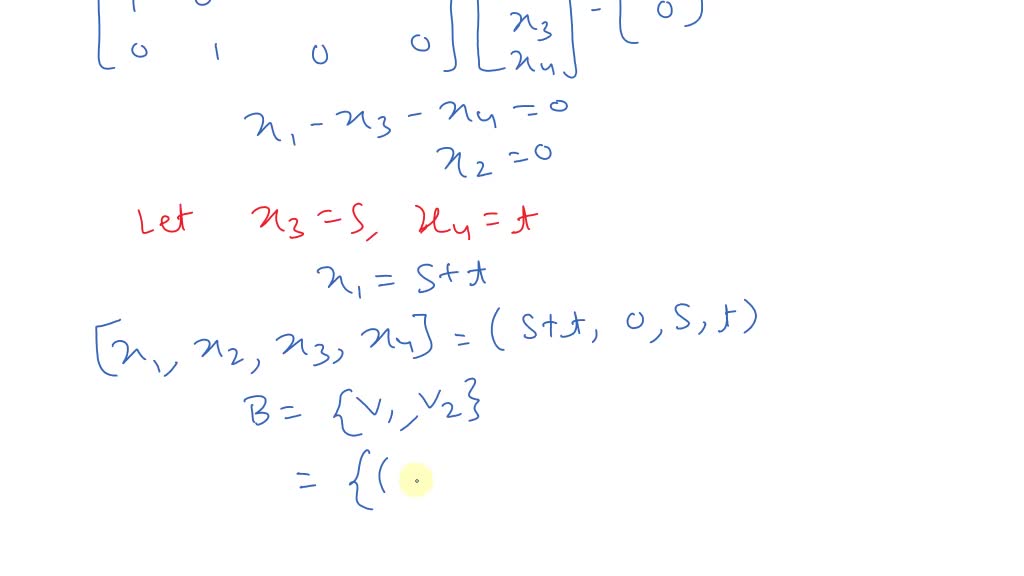 1 0 x3 = 0
0 1 0 0 x4
x1 - x3 - x4 = 0
x2 = 0
Let x3 = s, x4 = t
x1 = s+t
[x1, x2, x3, x4] = (s+t, 0, s, t)
B = {v1, v2}
= {(